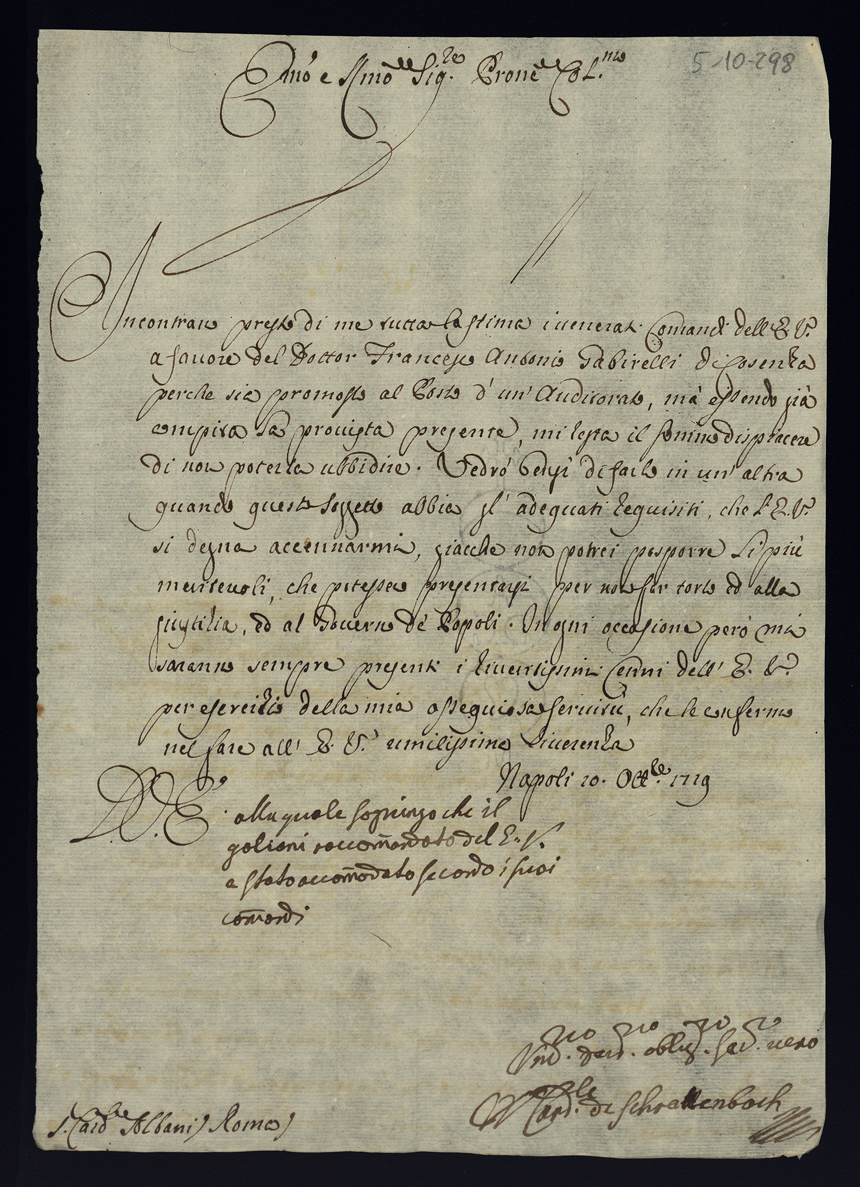 5-10-298
Emo e Rmo Sig.re Prone Col.mo
Incontrano presso di me tutta la stima i venerati Comandi dell'E.V.
a favore del Dottor Francesco Antonio Gabirelli di Cosenza
perche sia promosso al Posto d'un'Auditorato, mà essendo già
compita la provista presente, mi resta il sommo dispiacere
di non poterla ubbidire. Vedrò bensì di farlo in un'altra
quando questo soggetto abbia gl'adeguati requisiti, che l'E.V.
si degna accennarmi, giacche non potrei posporre li più
meritevoli, che potesser presentarsi per non far torto ed alla
giustitia, ed al Governo de' Popoli. In ogni occasione però mi
saranno sempre presenti i riveritissimi Cenni dell'E.V.
per esercitio della mia ossequiosa servitù, che le confermo
nel fare all'E.V. umilissima riverenza
Napoli 10. Ott.bre 1719
D.V.E.
alla quale sogiungo che il
goliani raccomandato del E.V.
a stato accommodato secondo i suoi
comandi
Um.mo Dev.mo obblig.mo Ser.e vero
W Card.le di Schrattenbach
S. Card.le Albani) Roma)